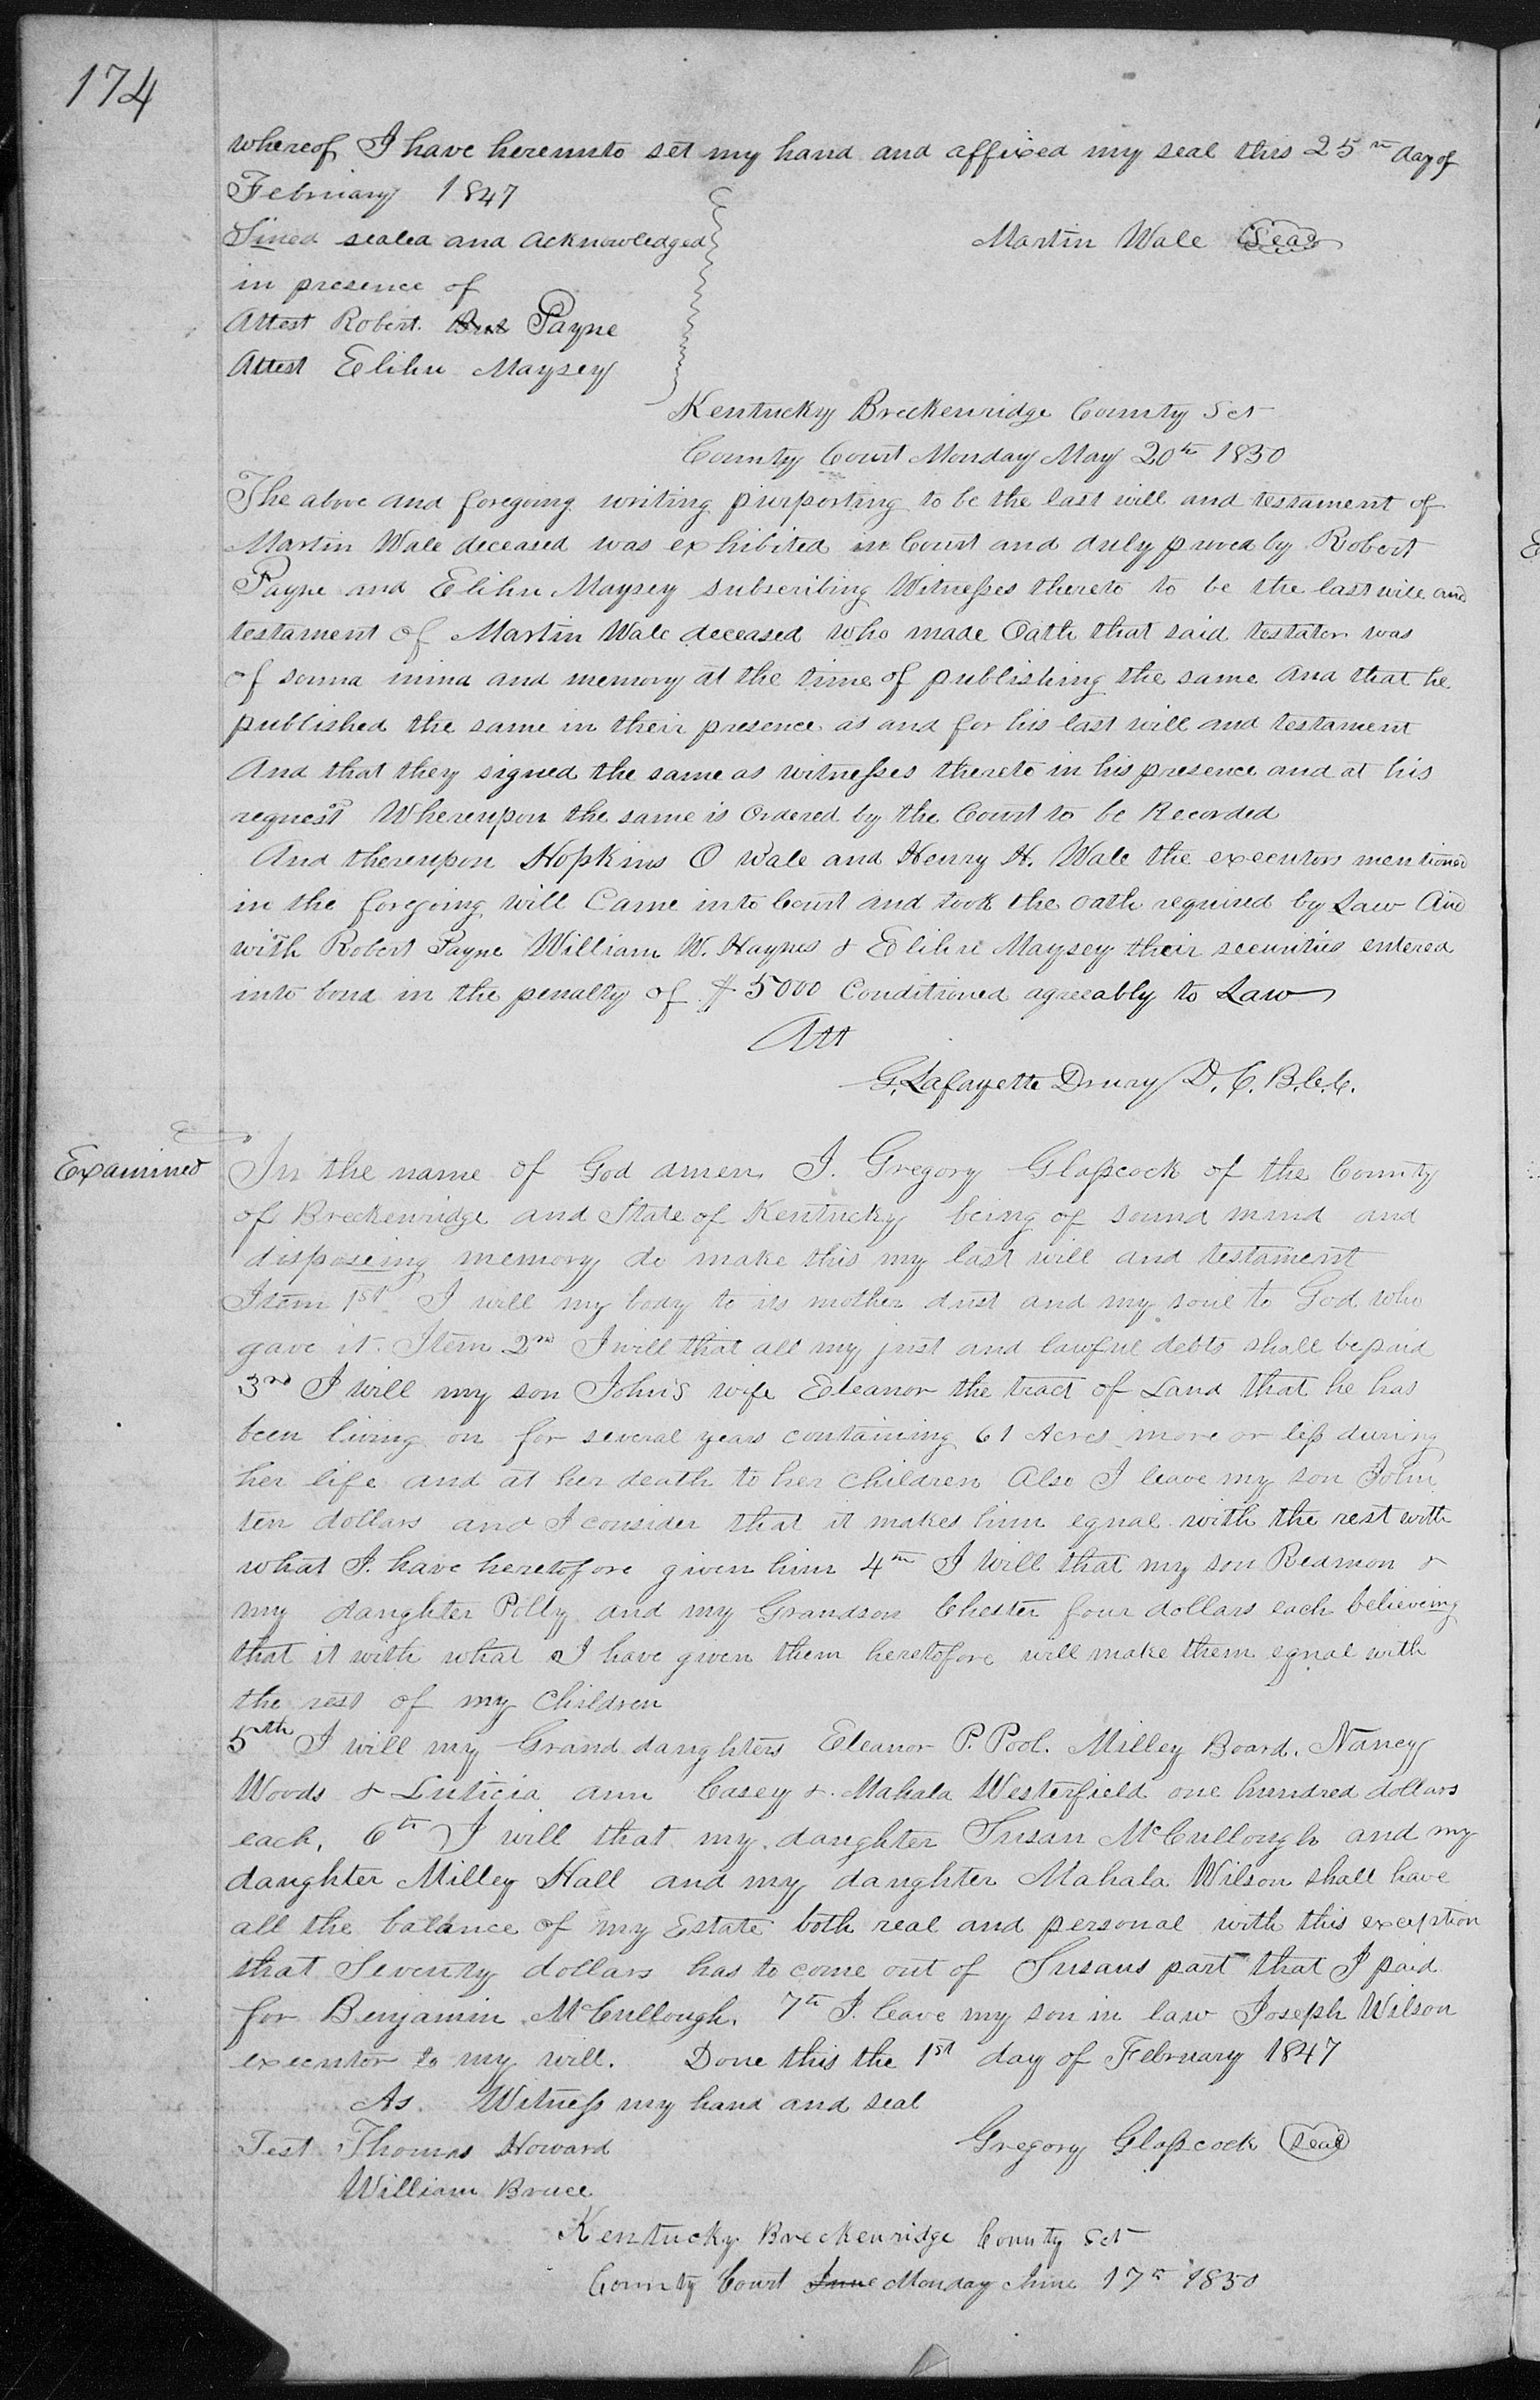 174
whereof I have hereunto set my hand and affixed my seal this 25th day of
February 1847
Sined sealed and acknowledged
Martin Wale Seal
in presence of
Attest Robert Payne
Attest Elihu Maysey
Kentucky Breckenridge County Sct
County Court Monday May 20th 1850
The above and foregoing writing purporting to be the last will and testament of
Martin Wale deceased was exhibited in Court and duly proved by Robert
Payne and Elihu Maysey subscribing Witnesses thereto to be the last will and
testament of Martin Wale deceased who made Oath that said testator was
of sound mind and memory at the time of publishing the same And that he
published the same in their presence as and for his last will and testament
And that they signed the same as witnesses thereto in his presence and at his
request Whereupon the same is Ordered by the Court to be Recorded
And thereupon Hopkins O Wale and Henry H. Wale the executors mentioned
in the foregoing will Came into Court and took the oath required by Law And
with Robert Payne William W. Haynes & Elihu Maysey their securities entered
into bond in the penalty of $5000 Conditioned agreeably to Law
Att
G. Lafayette Drury D. C. B.C.C.
Examined
In the name of God amen I. Gregory Glasscock of the County
of Breckenridge and State of Kentucky being of sound mind and
disposeing memory do make this my last will and testament
Item 1st I will my body to its mother dust and my soul to God who
gave it. Item 2nd I will that all my just and lawful debts shall be paid
3rd I will my son John's wife Eleanor the tract of Land that he has
been living on for several years containing 61 Acres more or less during
her life and at her death to her children Also I leave my son John
ten dollars and I consider that it makes him equal with the rest with
what I have heretofore given him 4th I will that my son Redmon &
my daughter Polly and my Grandson Chester four dollars each believeing
that it with what I have given them heretofore will make them equal with
the rest of my Children
5th I will my Grand daughters Eleanor P. Pool. Milley Board. Nancy
Woods & Luticia ann Casey & Mahala Westerfield one hundred dollars
each. 6th I will that my daughter Susan McCullough and my
daughter Milley Hall and my daughter Mahala Wilson shall have
all the balance of my Estate both real and personal with this exception
that Seventy dollars has to come out of Susans part that I paid
for Benjamin McCullough. 7th I leave my son in law Joseph Wilson
executor to my will. Done this the 1st day of February 1847
As Witness my hand and seal
Test Thomas Howard
Gregory Glasscock Seal
William Bruce
Kentucky Breckenridge County Sct
County Court June Monday June 17th 1850